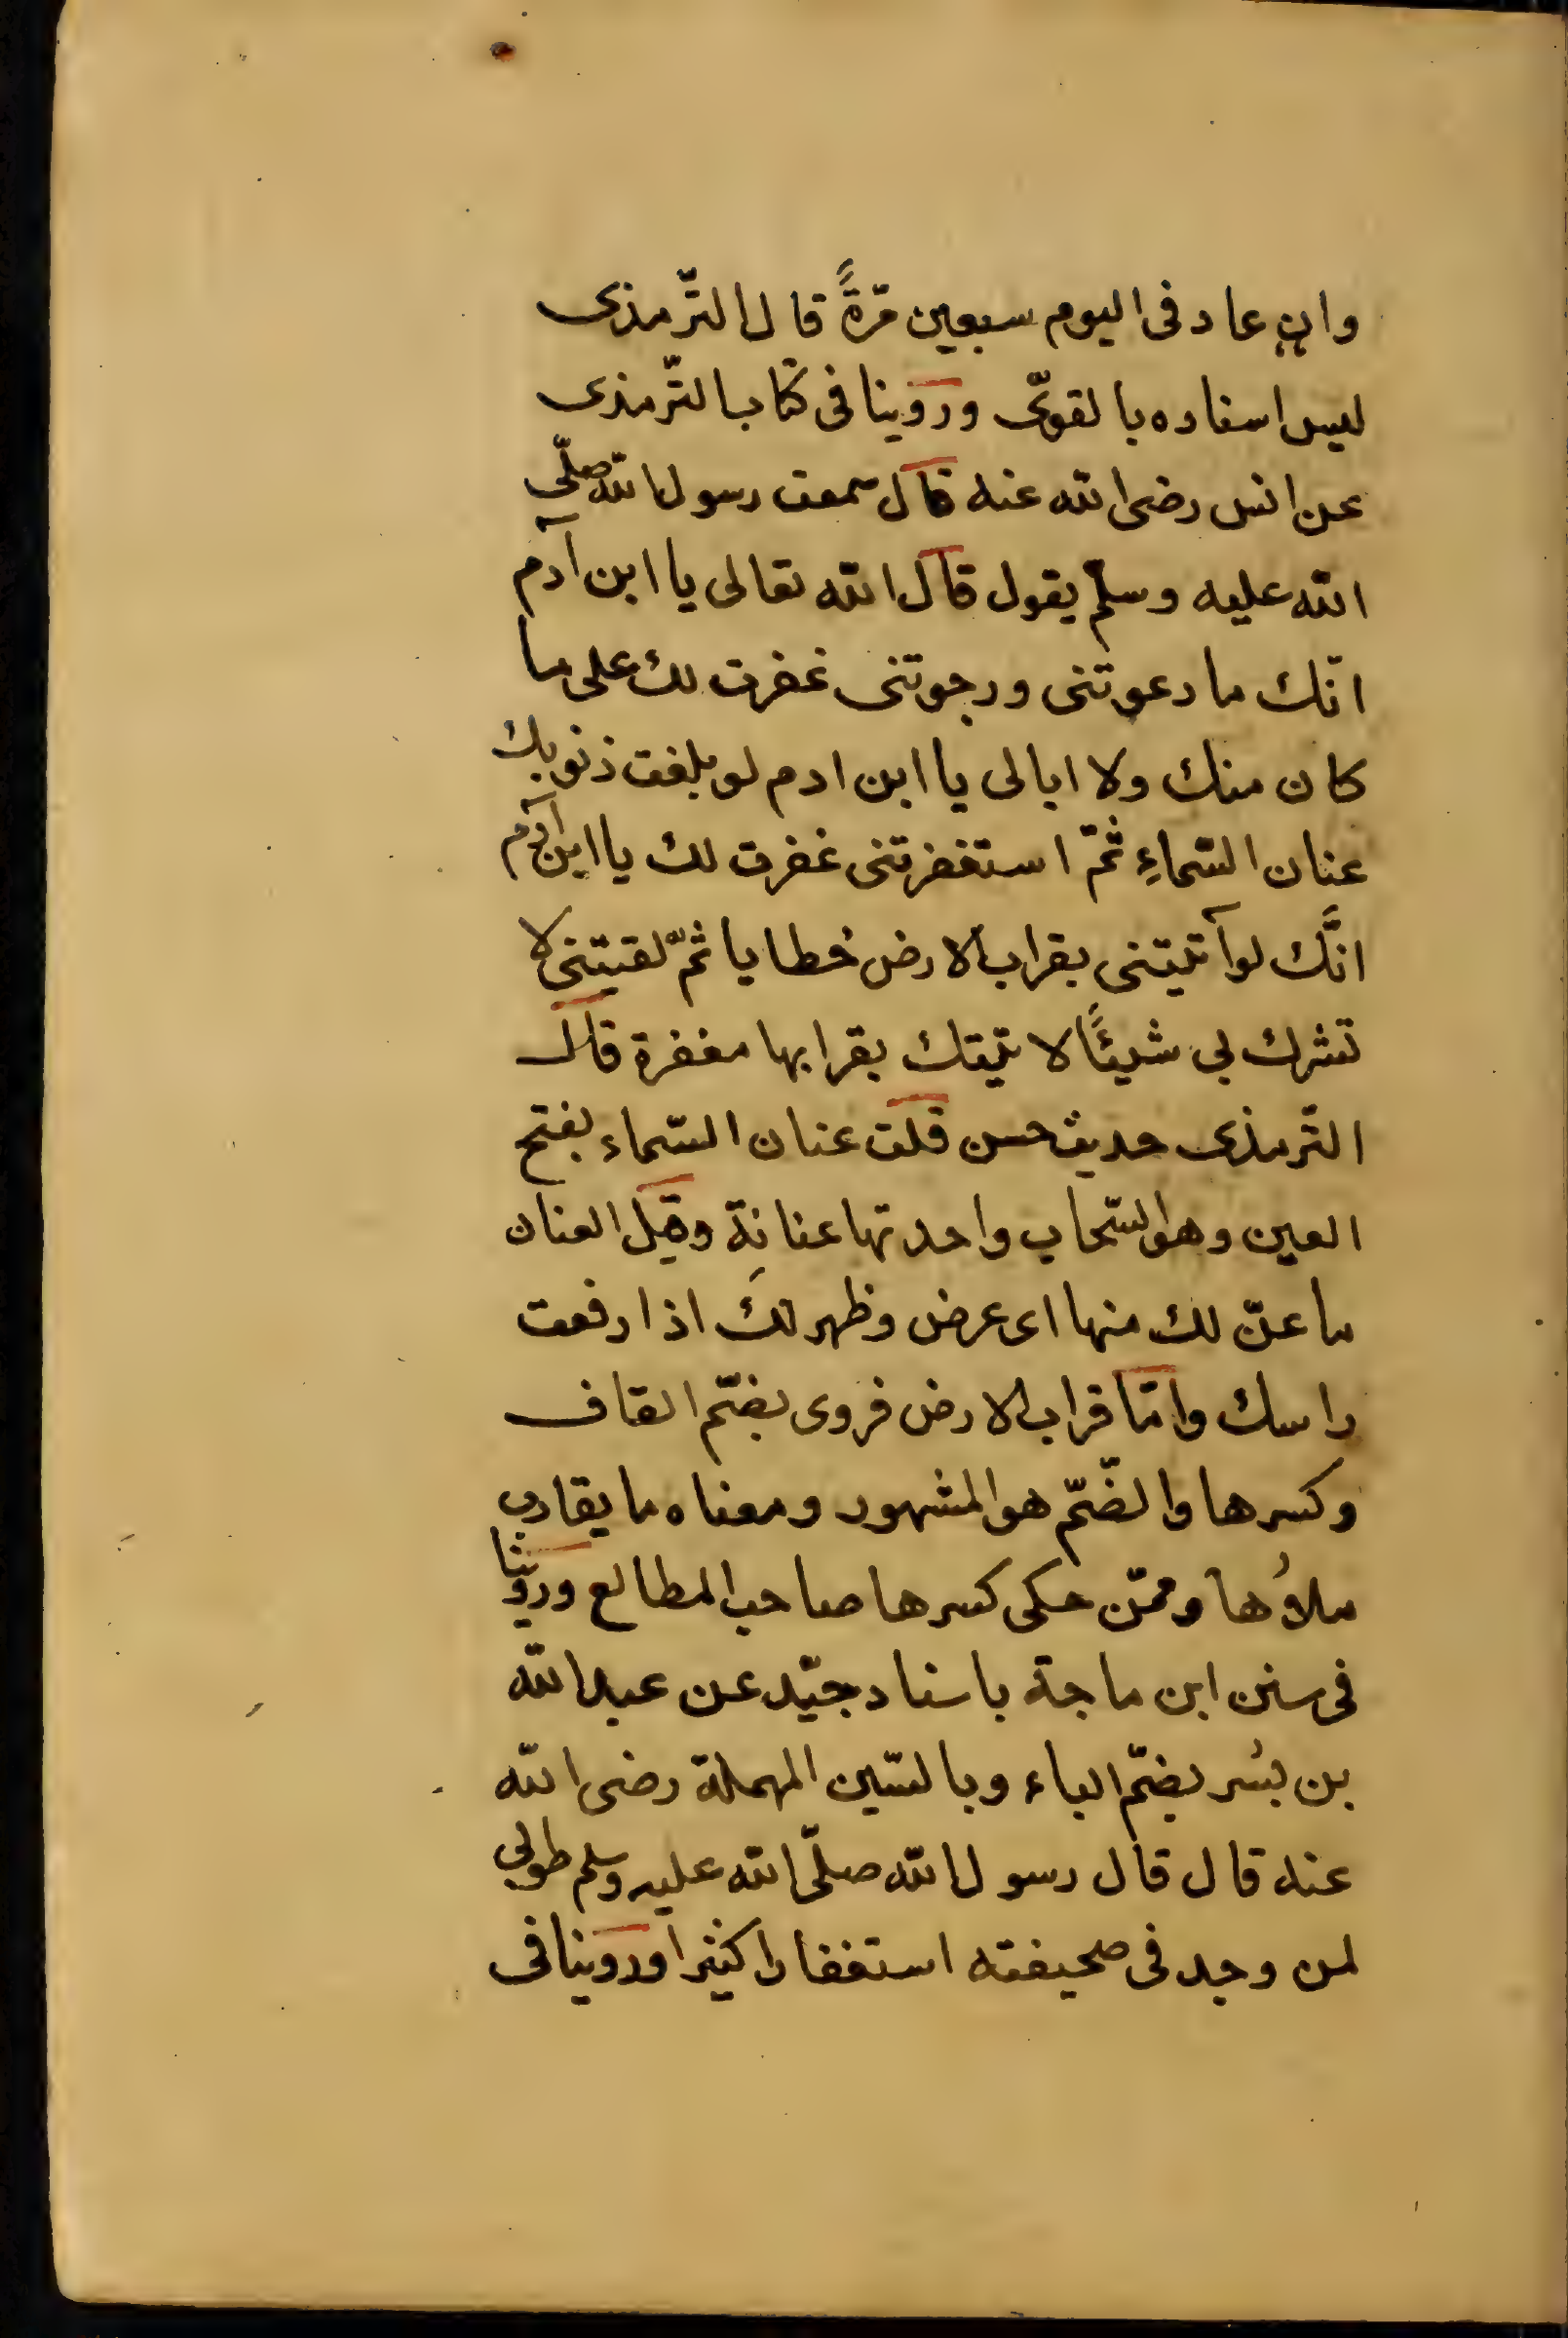 وان عاد فى اليوم سبعين مرّةً قال التّرمذى
ليس اسناده بالقوىّ وروينا فى كتاب التّرمذى
عن انس رضى الله عنه قال سمعت رسول الله صلّى
الله عليه وسلّم يقول قال الله تعالى يا ابن آدم
انّك ما دعوتنى ورجوتنى غفرت لك على ما
كان منك ولا ابالى يا ابن ادم لو بلغت ذنوبك
عنان السّماءِ ثمّ استغفرتنى غفرت لك يا ابن آدم
انَّك لو آتيتنى بقراب الارض خطايا ثمّ لقيتنى لا
تشرك بى شيئًا لاتيتك بقرابها مغفرة قال
التّرمذى حديث حسن قلت عنان السّماء بفتح
العين وهو السّحاب واحدتها عنانة وقيل العنان
ما عنّ لك منها اى عرض وظهر لكَ اذا رفعت
راسك وامّا قراب الارض فروى بضمّ القاف
وكسرها والضّمّ هو المشهور ومعناه ما يقارب
ملاؤها وممّن حكى كسرها صاحب المطالع وروينا
فى سنن ابن ماجة باسناد جيّد عن عبد الله
بن بُسر بضمّ الباء وبالسّين المهملة رضى الله
عنه قال قال رسول الله صلّى الله عليه وسلم طوبى
لمن وجد فى صحيفته استغفارا كثيرا وروينا فى